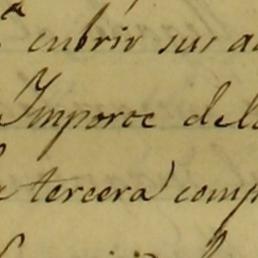 cubrir sus a
Imporoe del
a tercera comp